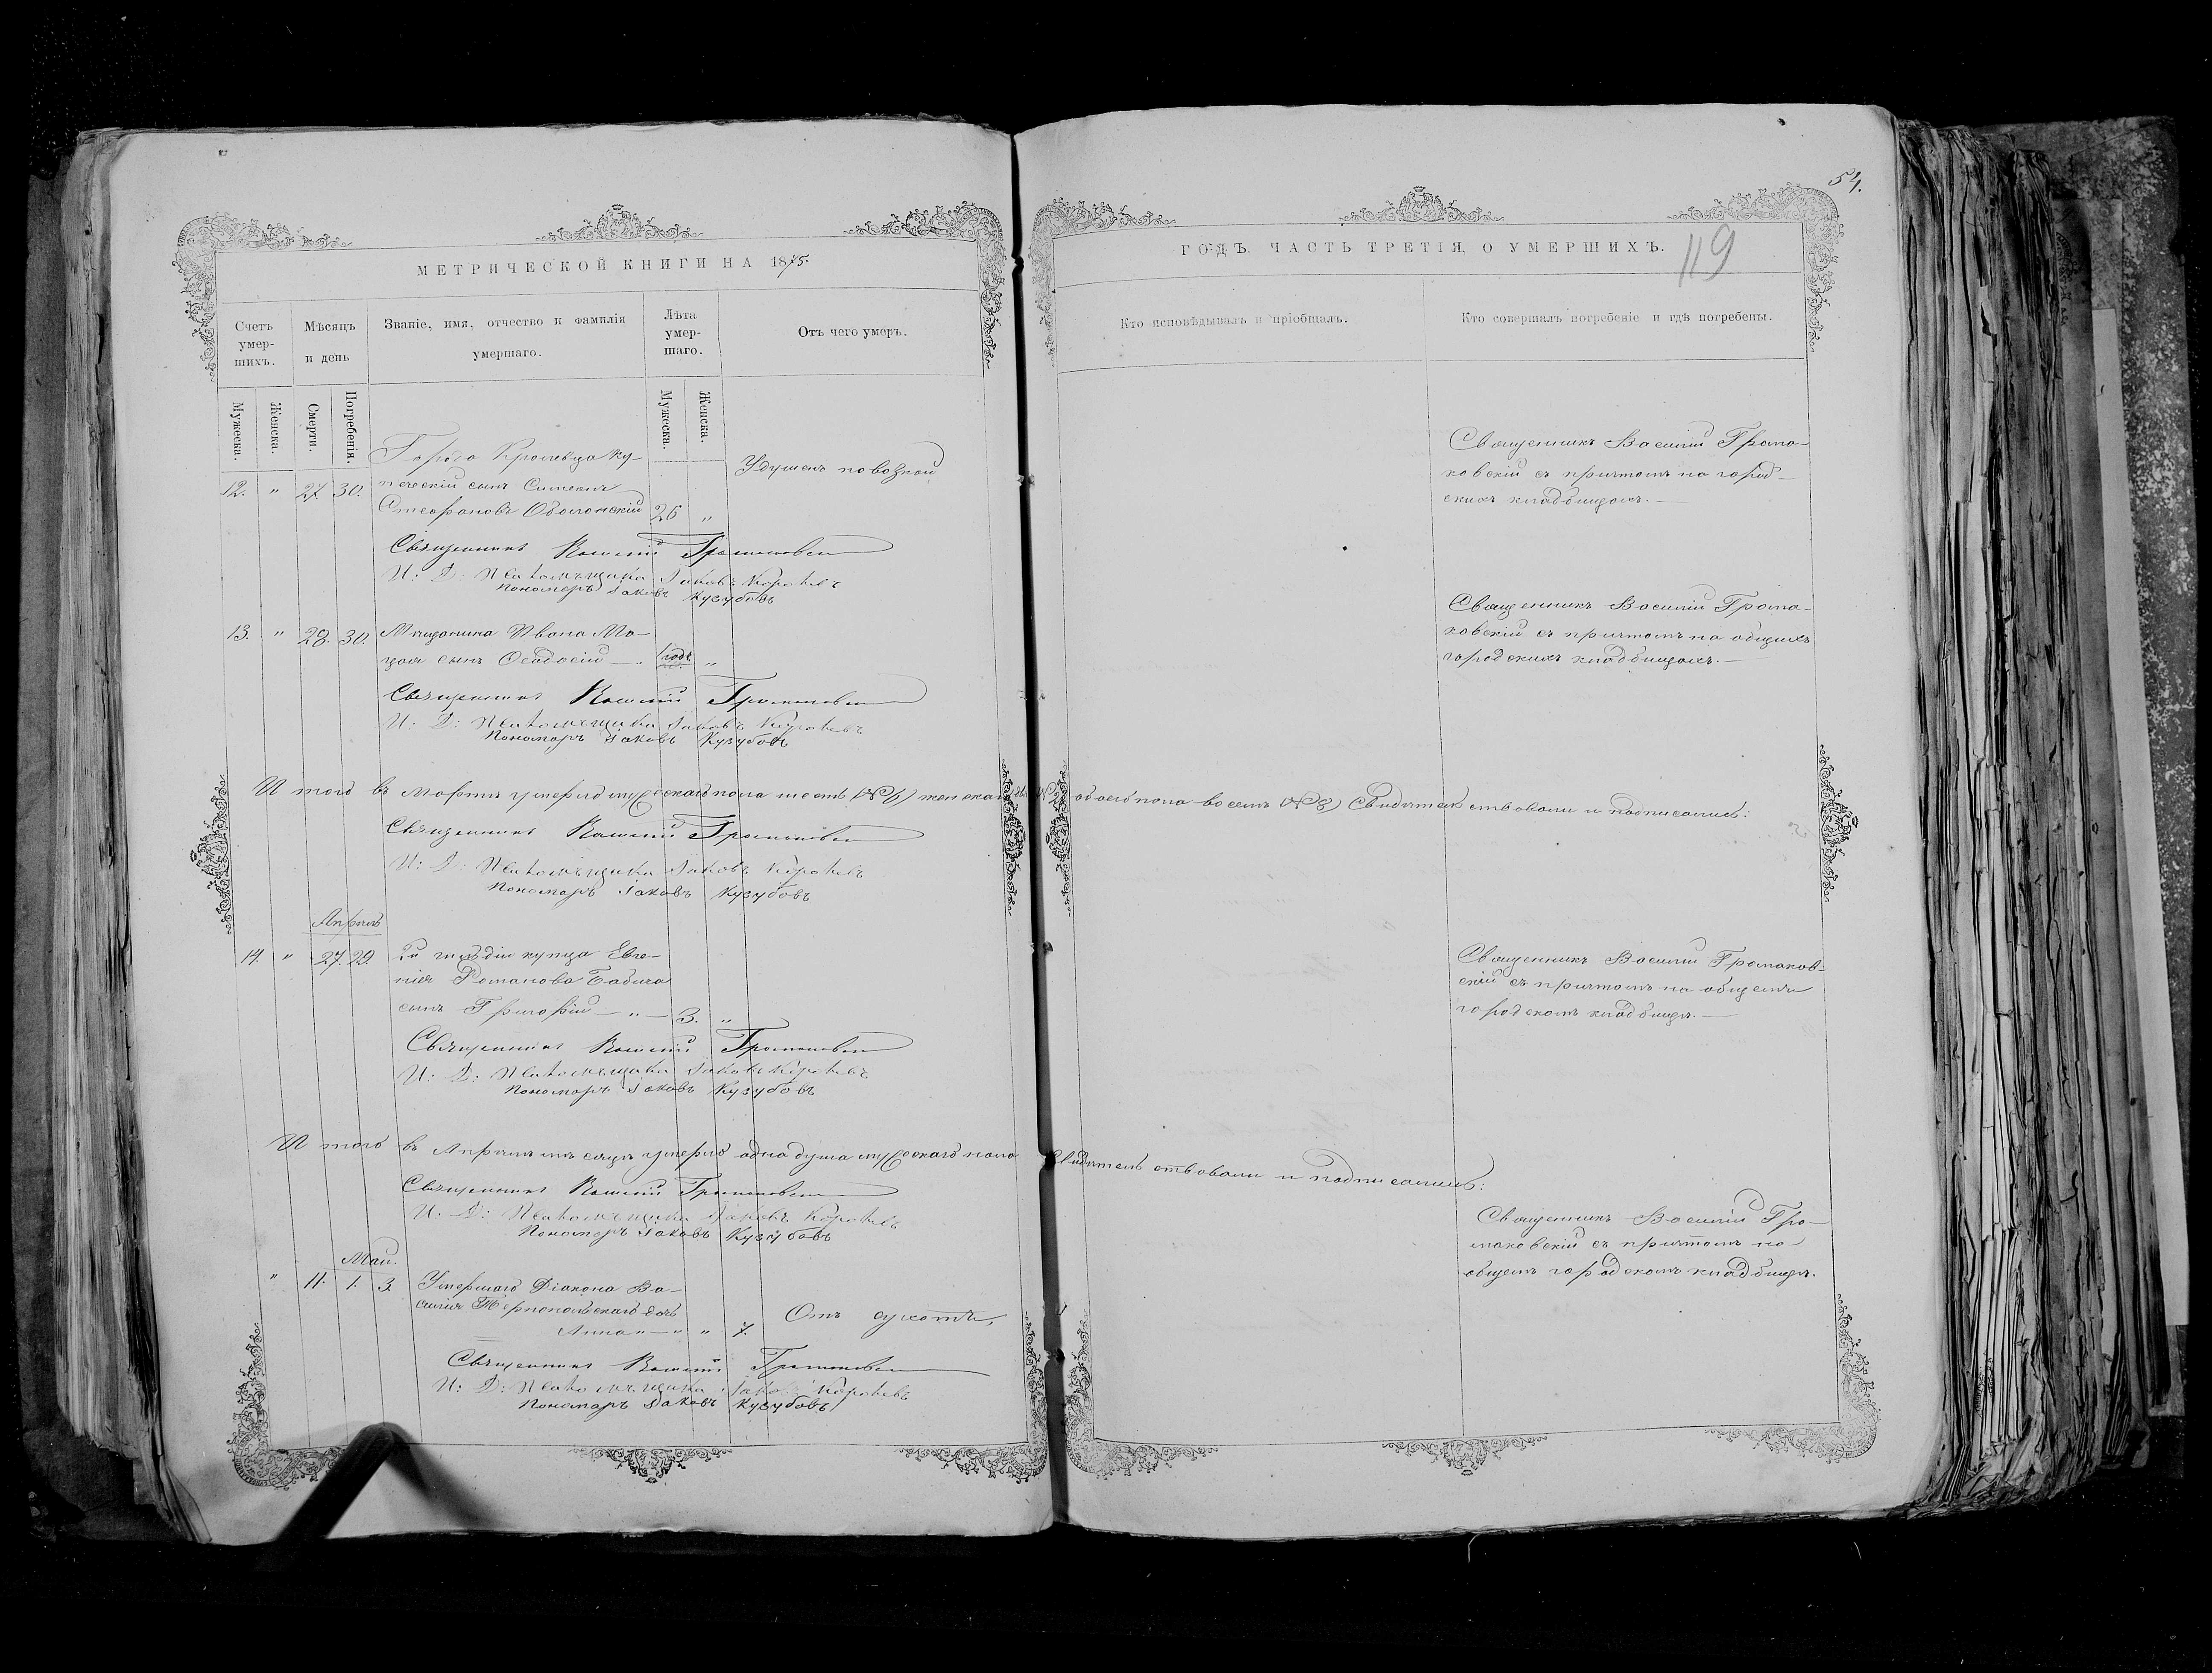 54.
119
МЕТРИЧЕСКОЙ КНИГИ НА 1875.
ГОДЪ. ЧАСТЬ ТРЕТІЯ, О УМЕРШИХЪ.
Счетъ умер-
шихъ.
Мѣсяцъ
и день
Званіе, имя, отчество и фамилія
умершаго.
Лѣта
умер-
шаго.
Отъ чего умеръ.
Кто исповѣдывалъ и пріобщалъ.
Кто совершалъ погребеніе и гдѣ погребены.
Мужеска.
Женска.
Смерти.
Погребенія.
Мужеска.
Женска.
Города Кролевца ку-
12. " 27. 30. печескій сынъ Симеонъ
Стефановъ Оболонскій 26 "
Удушенъ повозкой
Священникъ Василій Грома-
ковскій съ причтомъ на город-
скихъ кладбищахъ.
Священникъ Василій Громаковскій
И: Д: Псаломщика Іаковъ
Пономарь Іаковъ Кузубовъ
13. " 28. 30. Мѣщанина Ивана Ма-
сынъ Ѳеодосій — " 1 годъ "
Священникъ Василій Грома-
ковскій съ причтомъ на общихъ
городскихъ кладбищахъ.
Священникъ Василій Громаковскій
И: Д: Псаломщика Іаковъ
Пономарь Іаковъ Кузубовъ
Итого въ Мартѣ умерло мужескаго пола шесть (№6) женскаго обоего пола восемь (№8) Свидѣтельствовали и подписались:
Священникъ Василій Громаковскій
И: Д: Псаломщика Іаковъ
Пономарь Іаковъ Кузубовъ
Апрѣль
14. " 27. 29. 2й гильдіи купца Евге-
нія Романова Бабича
сынъ Григорій — " — 3. "
Священникъ Василій Громаков-
скій съ причтомъ на общемъ
городскомъ кладбищѣ.
Священникъ Василій Громаковскій
И: Д: Псаломщика Іаковъ
Пономарь Іаковъ Кузубовъ
Итого въ Апрѣлѣ мѣсяцѣ умерло одна душа мужескаго пола Свидѣтельствовали и подписались:
Священникъ Василій Громаковскій
И: Д: Псаломщика Іаковъ
Пономарь Іаковъ Кузубовъ
Май.
" 11. 1. 3. Умершаго Діакона Ва-
силія дочь
Анна " — " " 7.
Отъ сухотки,
Священникъ Василій Гро-
маковскій съ причтомъ на
общемъ городскомъ кладбищѣ.
Священникъ Василій Громаковскій
И: Д: Псаломщика Іаковъ
Пономарь Іаковъ Кузубовъ